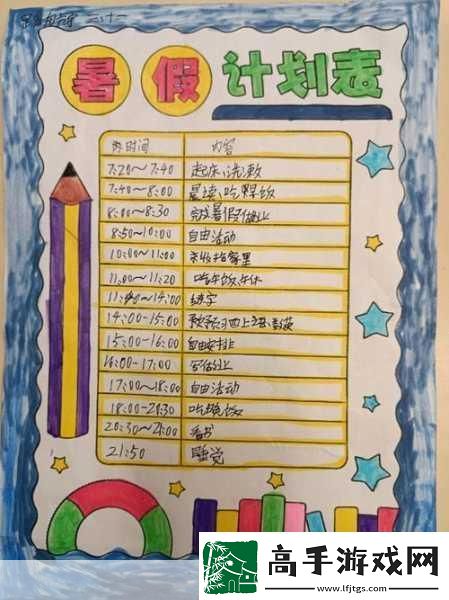 暑假计划表
时间 内容
7:20~7:40 起床、洗漱
7:40~8:00 晨读、吃早饭
8:00~8:30 完成暑假作业
8:50~10:00 自由活动
10:00~11:00
11:00~11:20 吃午饭、午休
11:40~14:00 练字
14:00-15:00
15:00-16:00 自由安排
16:00-17:00 写作业
17:00~18:00 自由活动
18:00-20:30 吃晚饭
20:30~21:00 看书
21:50 睡觉
高手游戏网
www.lfjtgs.com